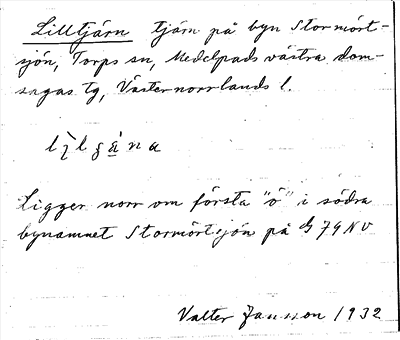 Lilltjärn tjärn på byn Stormört-
sjön, Torps sn, Medelpads västra dom-
sagas tg, Västernorrlands l.
Ligger norr om första "ö" i södra
bynamnet Stormörtsjön på 79 NV
Valter Jansson 1932